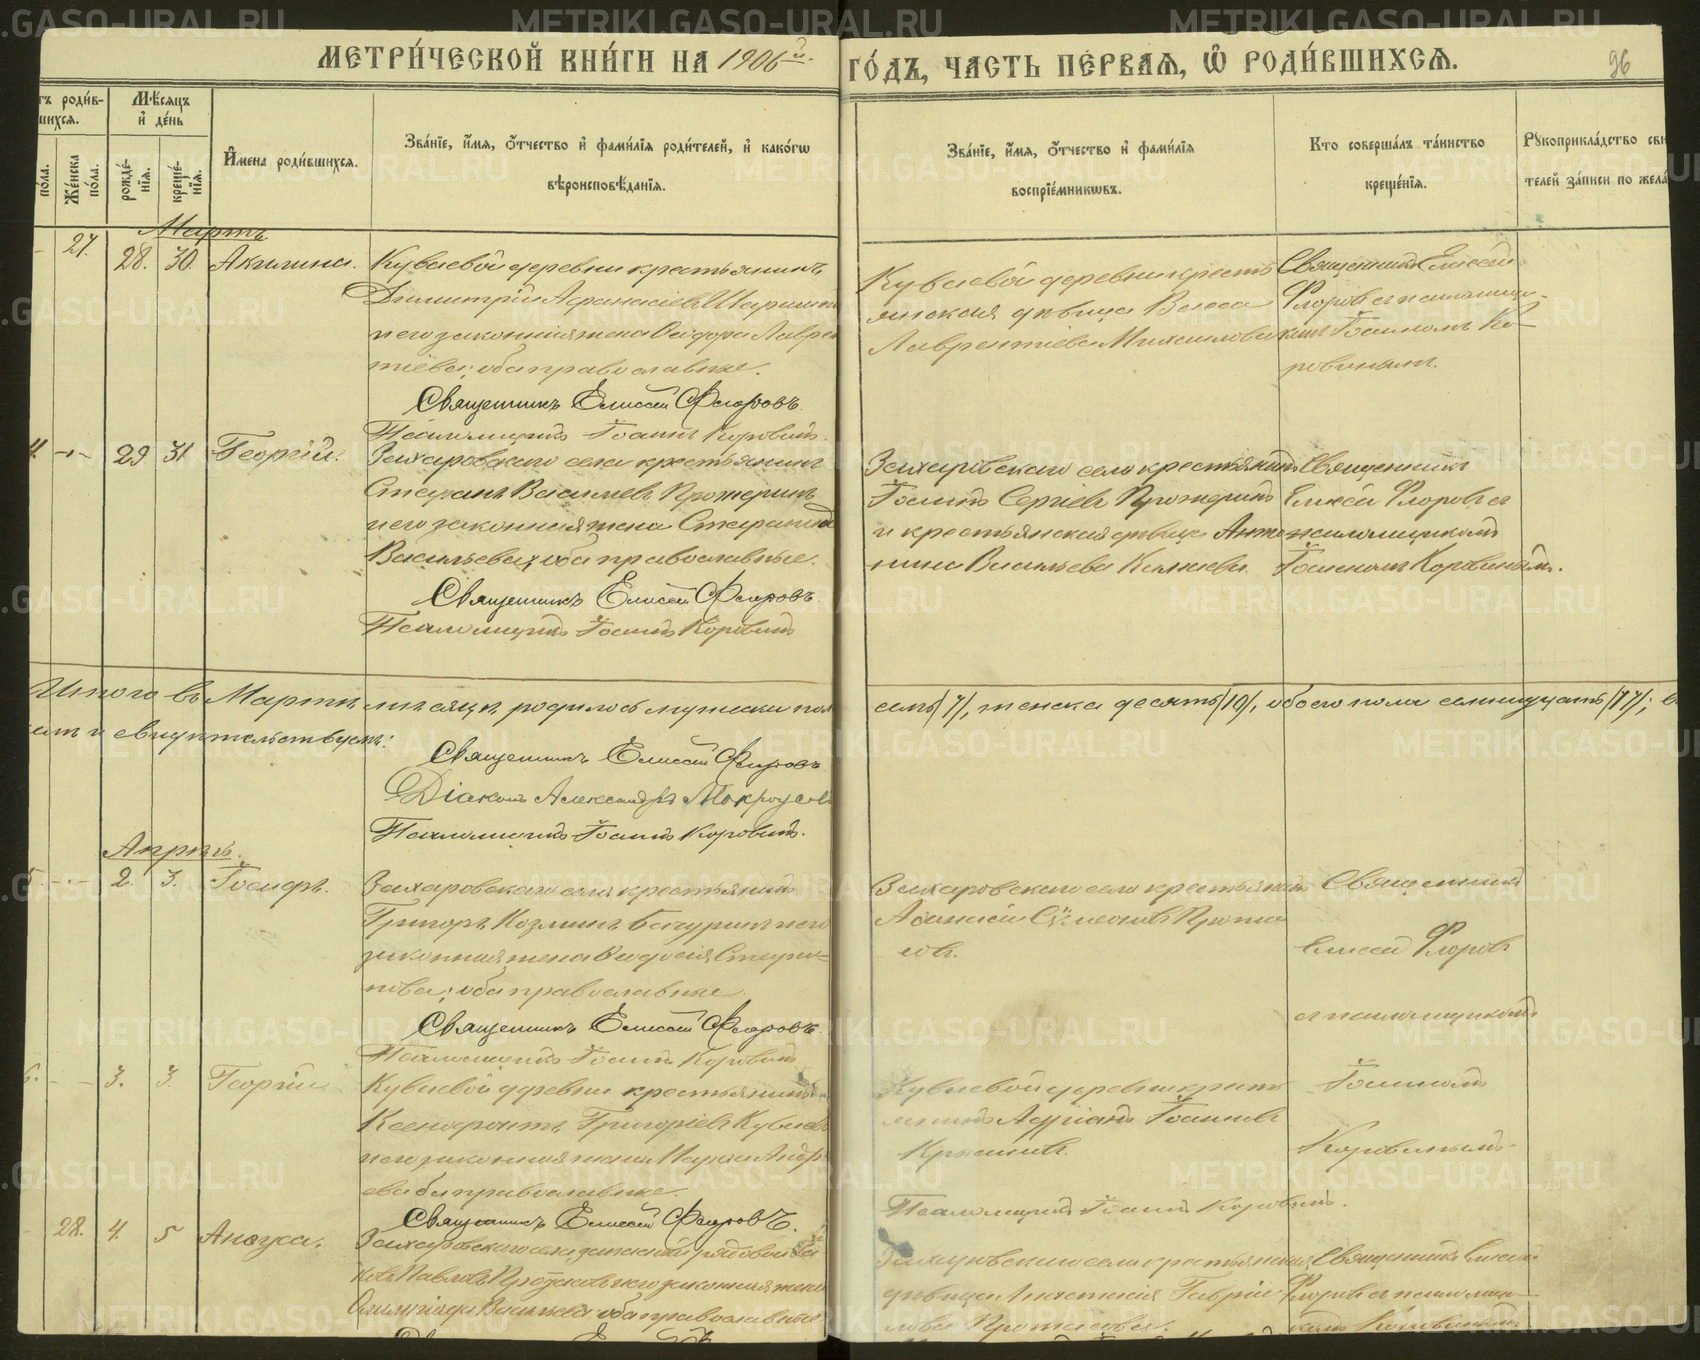 МЕТРИ́ЧЕСКОЙ КНИ́ГИ НА 1906й
ГО́ДЪ, ЧАСТЬ ПЕ́РВАѦ, Ѡ҆ РОДИ́ВШИХСѦ.
96
тъ роди́в-
шихсѧ.
Мѣ́сѧцъ
и҆ де́нь
по́ла.
Же́нска
по́ла.
рожде́-
нїѧ.
креще́-
нїѧ.
И҆мена роди́вшихсѧ.
Зва́нїе, и҆́мѧ, ѻ҆́тчество и҆ фами́лїѧ роди́телей, и҆ како́гѡ
вѣроисповѣ́данїѧ.
Зва́нїе, и҆́мѧ, ѻ҆́тчество и҆ фами́лїѧ
воспрїе́мникѡвъ.
Кто соверша́лъ та́инство
креще́нїѧ.
Рꙋкоприкла́дство сви
телей за́писи по жела́
Мартъ
27. 28. 30. Акилина.
Кубаевой деревни крестьянинъ
Димитрій Афанасіевъ
и его законная жена Лавре
тіева, оба православные.
Священникъ Елисей Флоровъ.
Псаломщикъ Іоаннъ Коровинъ.
Кубаевой деревни кресть
янская дѣвица Васса
Лаврентіева Михаилова
Священникъ Елисей
Флоровъ съ псаломщи-
комъ Іоанномъ Ко-
ровинымъ.
29 31 Георгій.
Захаровскаго села крестьянинъ
Стефанъ Васильевъ
и его законная жена Стефанида
Васильева, оба православные.
Священникъ Елисей Флоровъ.
Псаломщикъ Іоаннъ Коровинъ
Захаровскаго села крестьянинъ
Іоаннъ Сергіевъ
и крестьянская дѣвица Анто
нина Васильева
Священникъ
Елисей Флоровъ съ
псаломщикомъ
Іоанномъ Коровинымъ.
Итого въ Мартѣ мѣсяцѣ родилось мужеска пол
семь /7/, женска десять /10/, обоего пола семнадцать /17/; в
емъ и свидѣтельствуемъ:
Священникъ Елисей Флоровъ
Діаконъ Александръ Мокроусовъ
Псаломщикъ Іоаннъ Коровинъ.
Апрѣль.
2. 3. Іосифъ.
Захаровскаго села крестьянинъ
Григорій Козминъ и его
законная жена Ѳеодосія Стефа-
нова; оба православные.
Священникъ Елисей Флоровъ.
Псаломщикъ Іоаннъ Коровинъ
Захаровскаго села крестьянинъ
Афанасій Сѵмеоновъ Прота
совъ.
Священникъ
Елисей Флоровъ
съ псаломщикомъ
Іоанномъ
Коровинымъ.
3. 3. Георгій
Кубаевой деревни крестьянинъ
Ксенофонтъ Григоріевъ Кубаевъ
и его законная жена Марія Андр
ева оба православные.
Священникъ Елисей Флоровъ.
Кубаевой деревни кресть
янинъ Адріанъ Іоанновъ
Псаломщикъ Іоаннъ Коровинъ.
28. 4. 5 Анфуса.
Захаровскаго села запасный рядовой
Павловъ и его законная жена
Олимпіада Васильева оба православные
Захаровскаго села крестьянская
дѣвица Анастасія Гаврии
лова Протасова.
Священникъ Елисей
Флоровъ съ псаломщи-
комъ Коровинымъ
METRIKI.GASO-URAL.RU